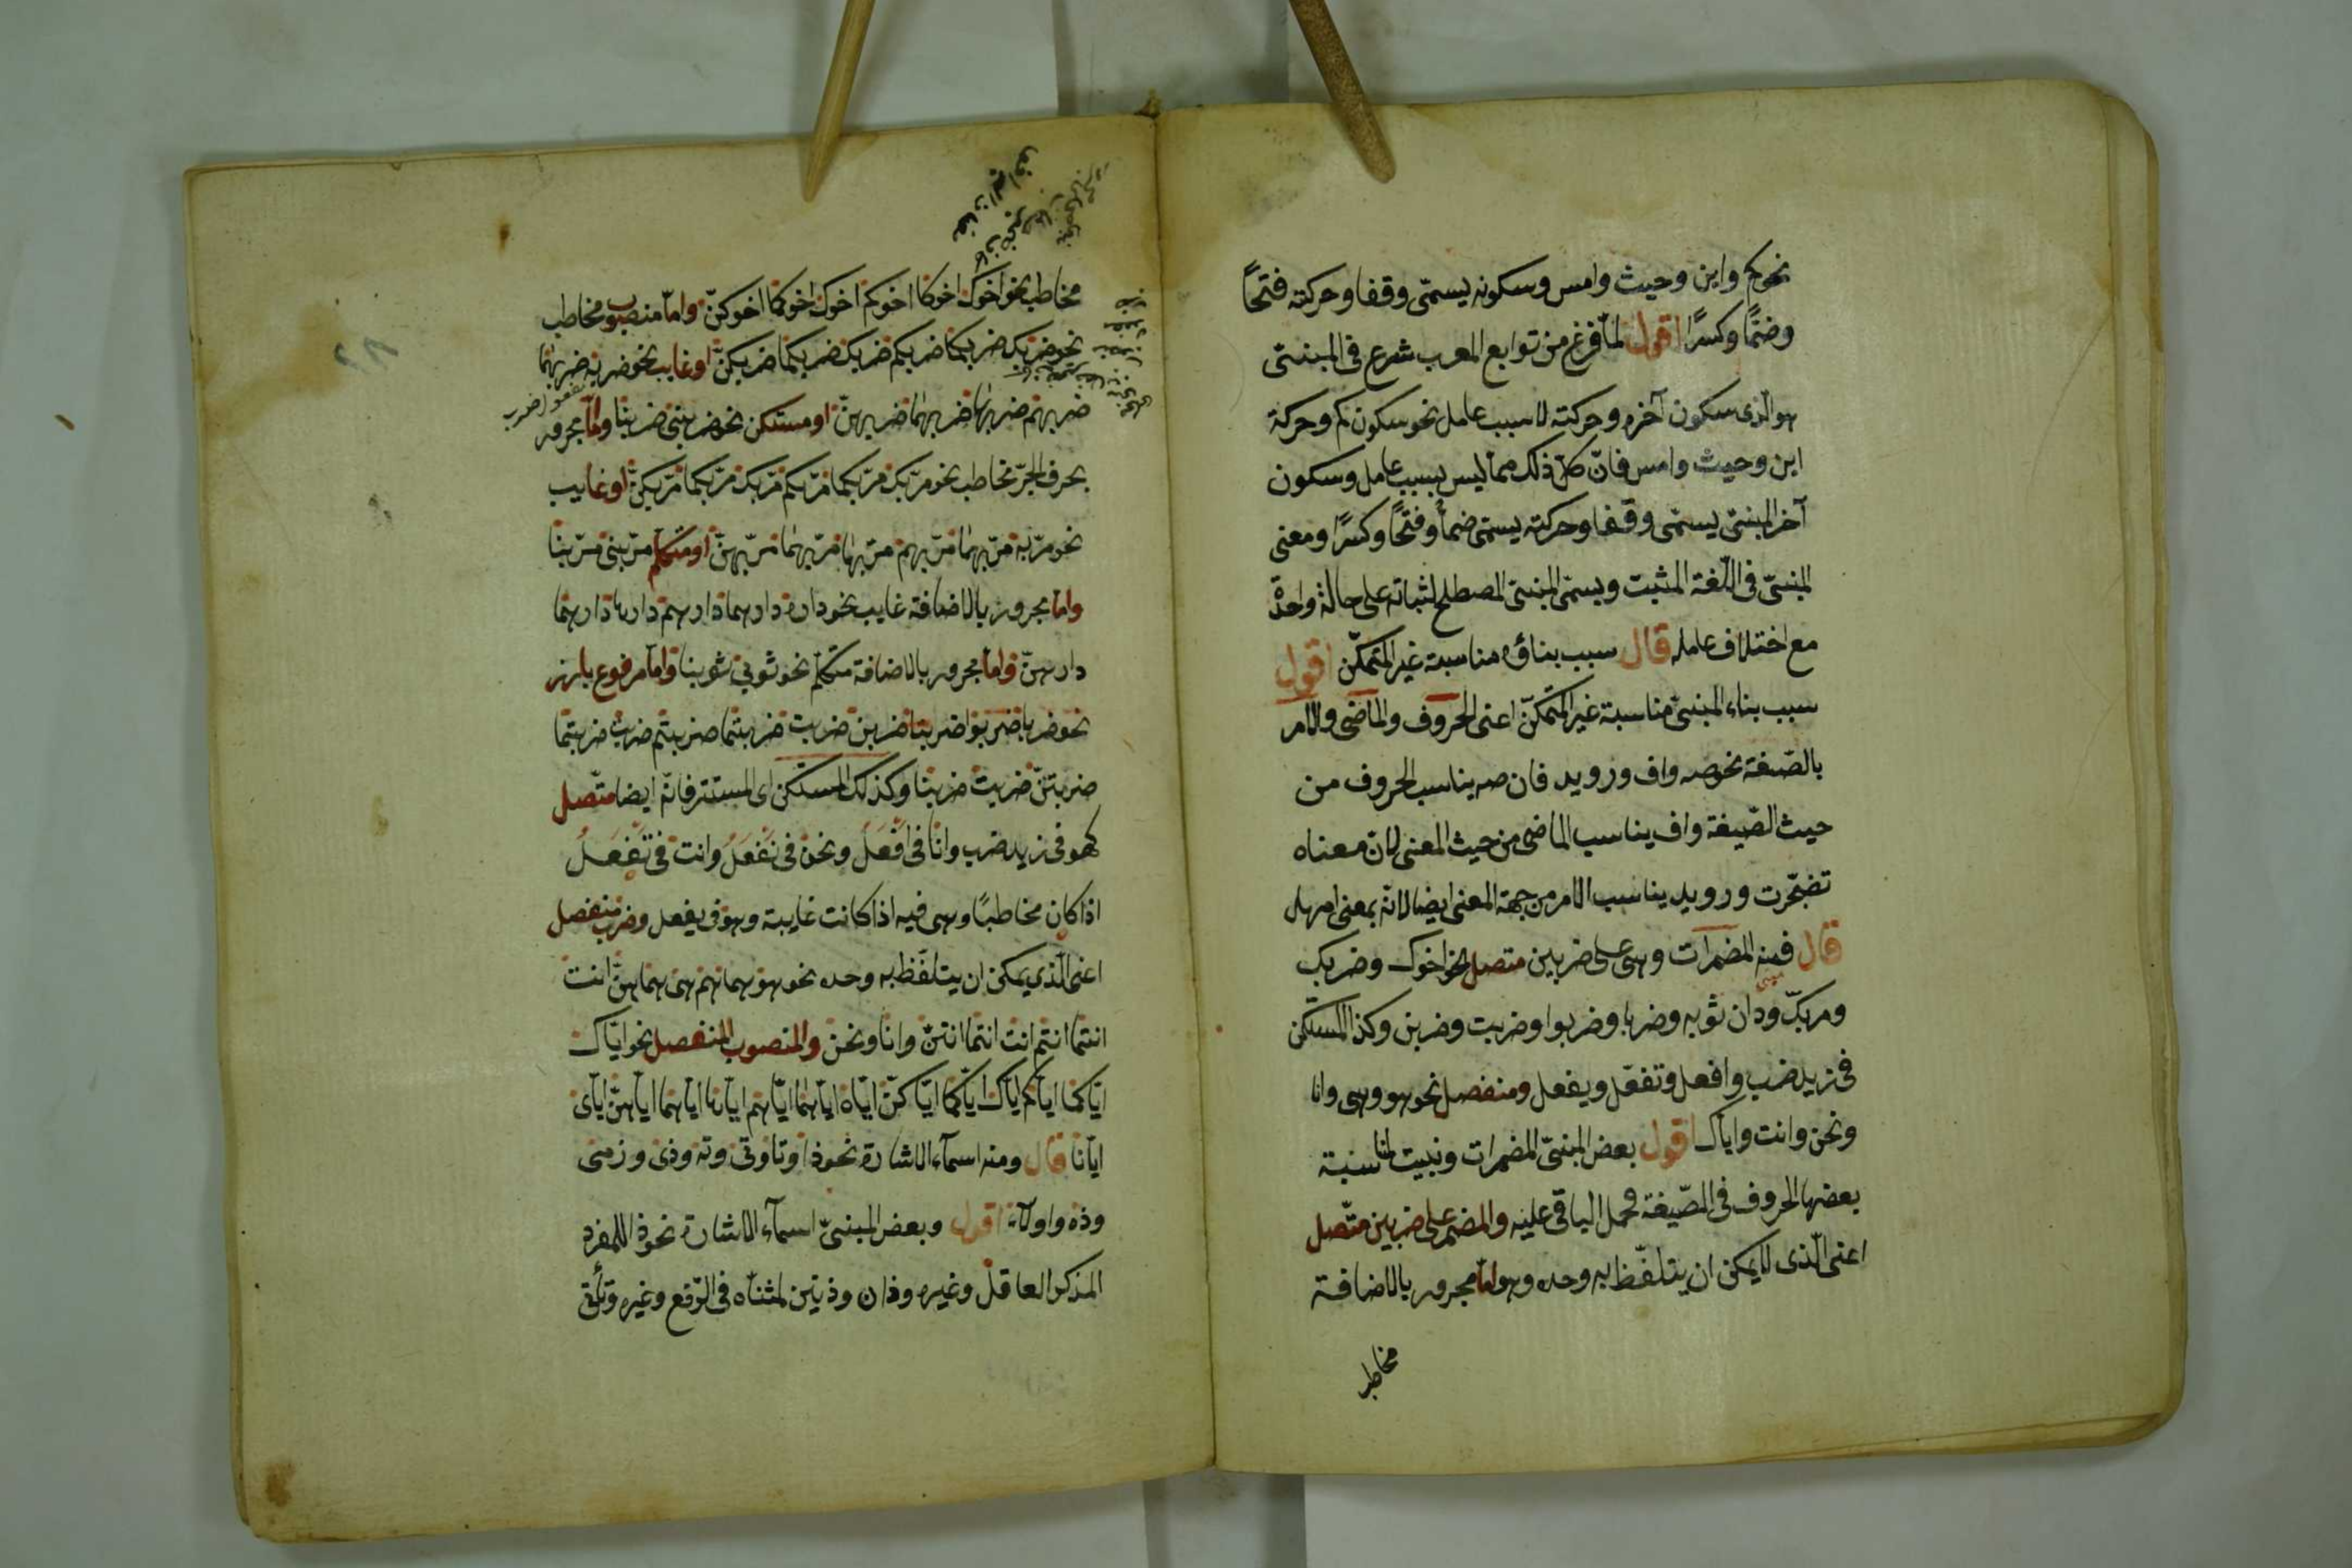 نحو كم واين وحيث وامس وسكونه يسمّى وقفا وحركته فتحًا
وضمًّا وكسرًا اقول لمّا فرغ من توابع المعرب شرع فى المبنىّ
هو الّذى سكون آخره وحركته لا بسبب عامل نحو سكون كم وحركة
اين وحيث وامس فانّ كلّ ذلك ممّا ليس بسبب عامل وسكون
آخر المبنىّ يسمّى وقفا وحركته يسمّى ضمًّا وفتحًا وكسرًا ومعنى
المبنىّ فى اللّغة المثبت ويسمّى المبنىّ المصطلح لثباته على حالة واحدة
مع اختلاف عامله قال سبب بناؤه مناسبة غير المتمكّن اقول
سبب بناء المبنىّ مناسبة غير المتمكّن اعنى الحروف والماضى والامر
بالصّيغة نحو صه واف ورويد فان صه يناسب الحروف من
حيث الصّيغة واف يناسب الماضى من حيث المعنى لان معناه
تضجّرت ورويد يناسب الامر من جهة المعنى ايضا لانّه بمعنى امهل
قال فمنه المضمرات وهى على ضربين متصل نحو اخوك وضربك
ومرّ بك ودان ثوبه وضربا وضربوا وضربت وضربن وكذا المستكن
فى زيد ضرب وافعل وتفعل ويفعل ومنفصل نحو هو وهى وانا
ونحن وانت واياك اقول بعض المبنىّ المضمرات وبنيت لمناسبة
بعضها الحروف فى الصّيغة وحمل الباقى عليه والمضمر على ضربين متّصل
اعنى الّذى لا يمكن ان يتلفّظ به وحده وهو امّا مجرور بالاضافة
مخاطب
مخاطب نحو اخوك اخوكما اخوكم اخوك اخوكما اخوكنّ وامّا منصوب مخاطب
نحو ضربك ضربكما ضربكم ضربك ضربكما ضربكنّ او غايب نحو ضربه ضربهما
ضربهم ضربها ضربهما ضربهنّ او مستكن نحو ضربنى ضربنا وامّا مجرور
بحرف الجرّ مخاطب نحو مرّ بك مرّ بكما مرّ بكم مرّ بك مرّ بكما مرّ بكنّ او غايب
نحو مرّ به مرّ بهما مرّ بهم مرّ بها مرّ بهما مرّ بهنّ او متكلم مرّ بنى مرّ بنا
وامّا مجرور بالاضافة غايب نحو داره دارهما دارهم دارها دارهما
دارهنّ وامّا مجرور بالاضافة متكلّم نحو ثوبى ثوبنا وامّا مرفوع بارز
نحو ضربا ضربوا ضربتا ضربن ضربت ضربتما ضربتم ضربت ضربتما
ضربتنّ ضربت ضربنا وكذلك المستكن اى المستتر فانّه ايضا متّصل
كهو فى زيد ضرب وانا فى افعل ونحن فى نفعل وانت فى تفعل
اذا كان مخاطبًا وهى فيه اذا كانت غايبة وهو فى يفعل وضرب منفصل
اعنى الّذى يمكن ان يتلفّظ به وحده نحو هو هما هم هى هما هنّ انت
انتما انتم انت انتما انتنّ وانا ونحن والمنصوب المنفصل نحو ايّاك
ايّاكما ايّاكم ايّاك ايّاكما ايّاكنّ ايّاه ايّاهما ايّاهم ايّاها ايّاهما ايّاهنّ ايّاى
ايّانا قال ومنه اسمآء الاشارة نحو ذا وتا وتى وته وذى
وذه واولآء اقول وبعض المبنىّ اسمآء الاشارة نحو ذا للمفرد
المذكر العاقل وغيره وذان وذين لمثنّاه فى الرّفع وغيره